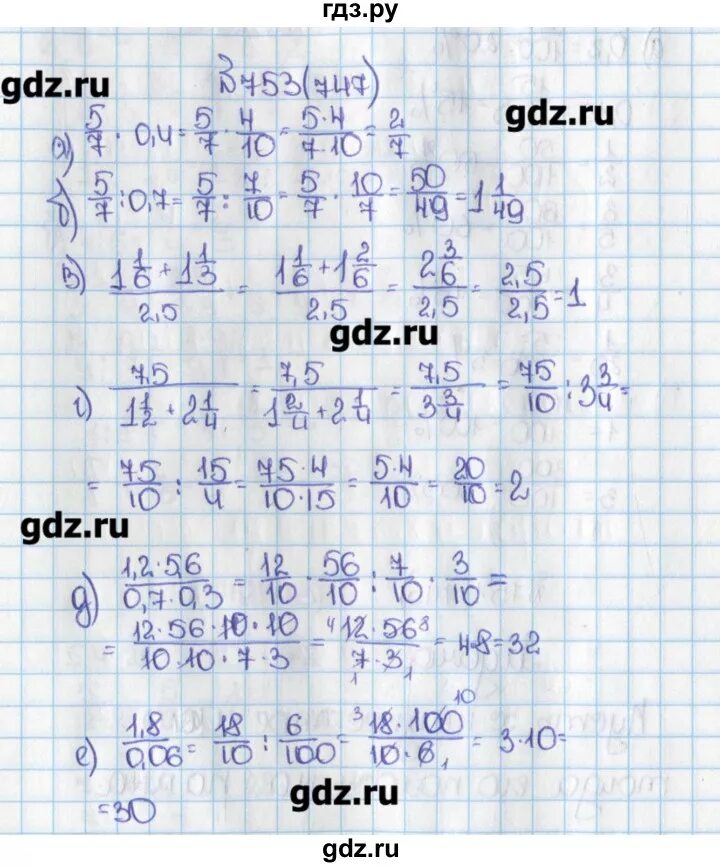 гдз.ру
gdz.ru
№753(747)
gdz.ru
а) 5/7 · 0,4 = 5/7 · 4/10 = 5·4/7·10 = 2/7
б) 5/7 : 0,7 = 5/7 : 7/10 = 5/7 · 10/7 = 50/49 = 1 1/49
в) (1 1/6 + 1 1/3)/2,5 = (1 1/6 + 1 2/6)/2,5 = (2 3/6)/2,5 = 2,5/2,5 = 1
gdz.ru
г) 7,5/(1 1/2 + 2 1/4) = 7,5/(1 2/4 + 2 1/4) = 7,5/(3 3/4) = 75/10 : 3 3/4 =
= 75/10 : 15/4 = 75·4/10·15 = 5·4/10 = 20/10 = 2
gdz.ru
д) 1,2·5,6/0,7·0,3 = 12/10 · 56/10 : 7/10 · 3/10 =
= 12·56·10·10/10·10·7·3 = 4 12·56 8/7·3 1 1 = 4·8=32
е) 1,8/0,06 = 18/10 : 6/100 = 3 18·100 10/10·6 1 = 3·10=
=30
gdz.ru
гдз.ру